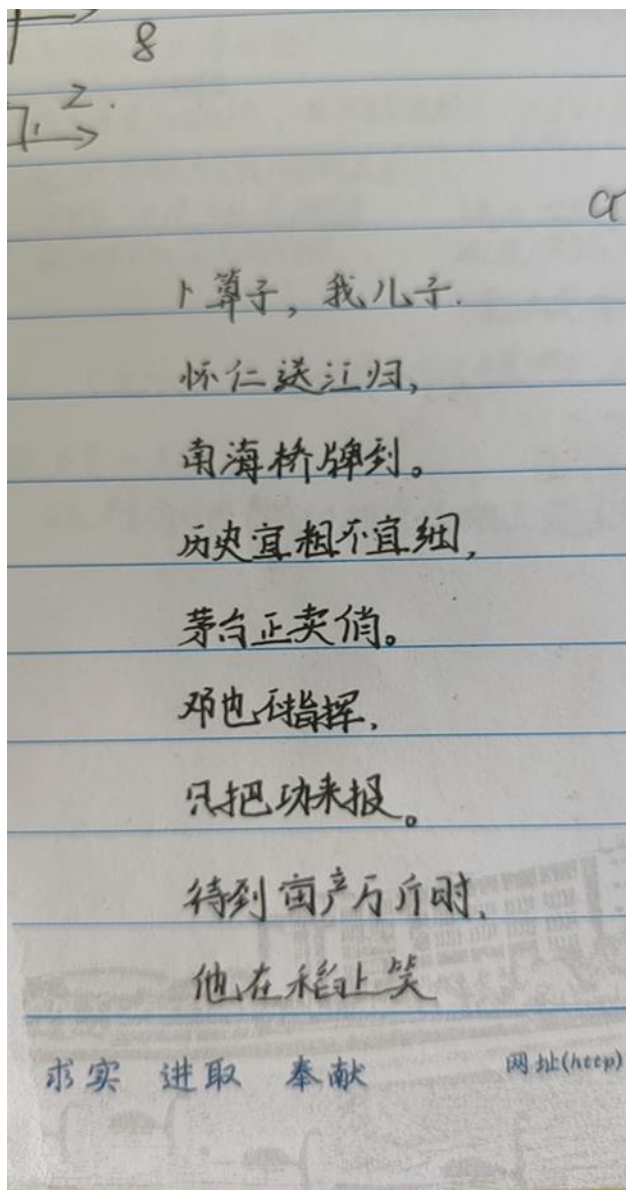 8
2.
a
卜算子，我儿子.
怀仁送江归，
南海桥牌到。
历史宜粗不宜细，
茅台正卖俏。
邓也不指挥，
只把功来报。
待到亩产万斤时，
他在稻上笑
求实 进取 奉献 网址(http)